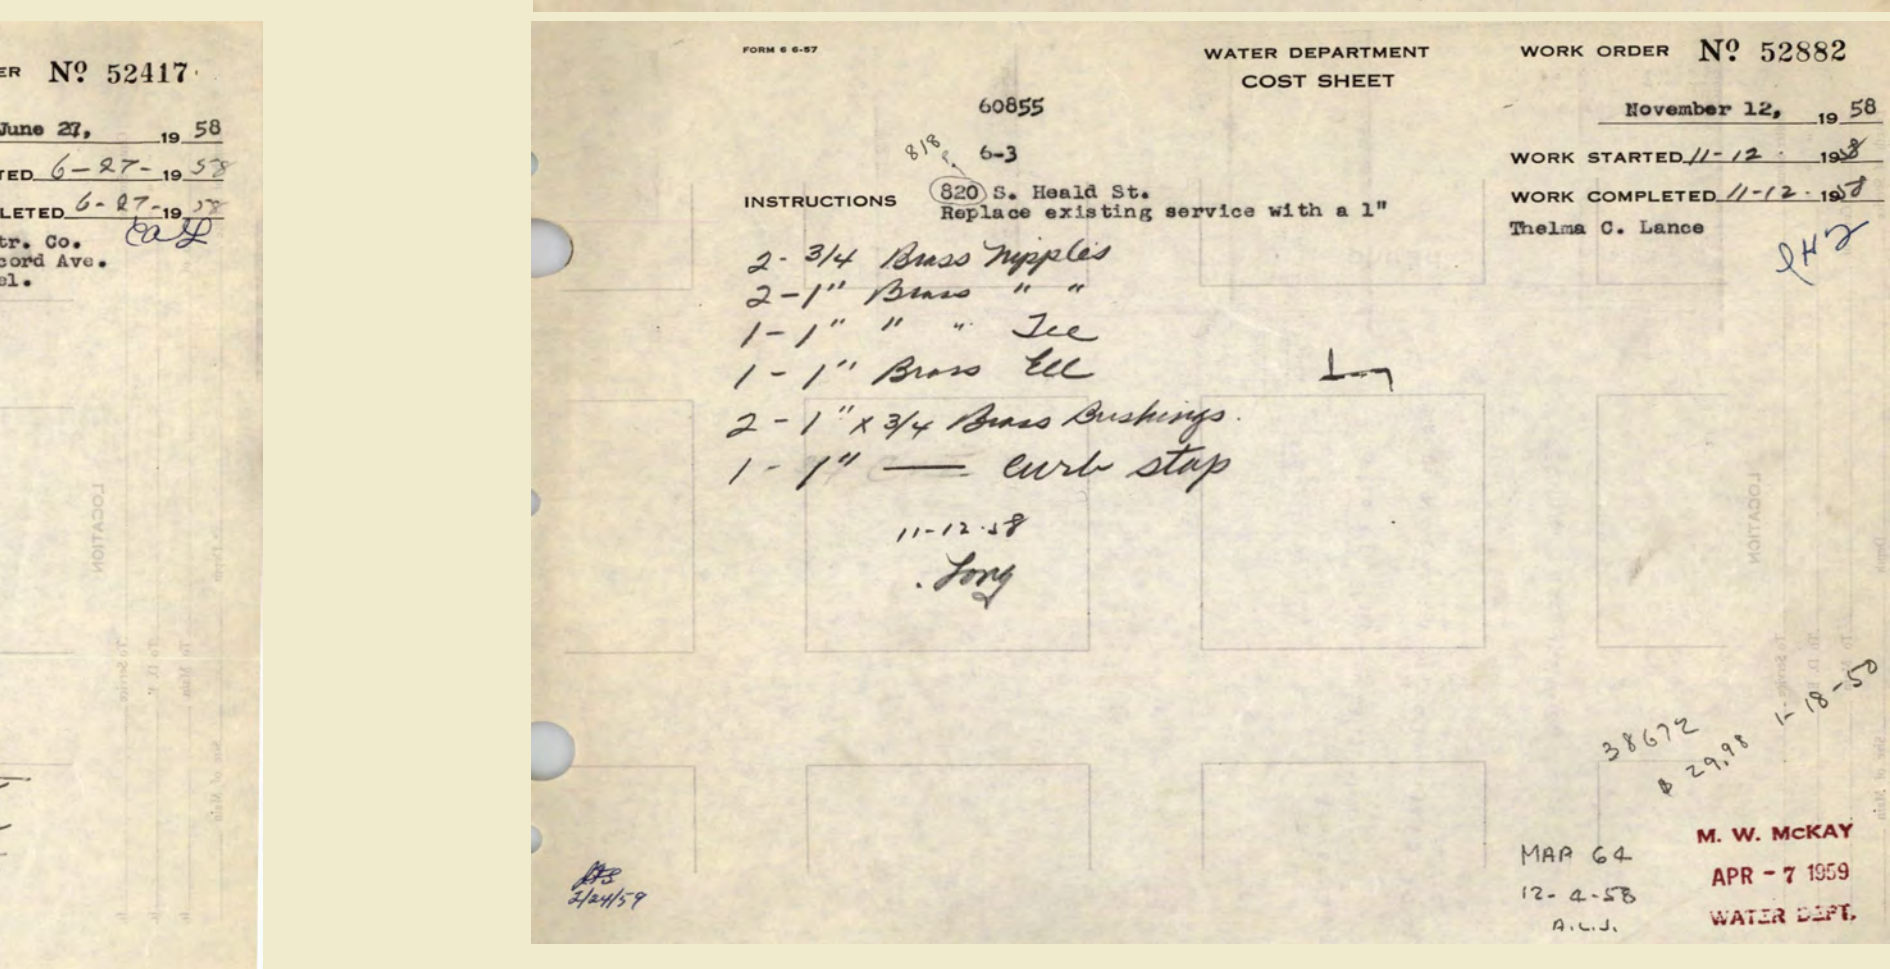 ER Nº 52417
June 27, 19 58
TED 6-27- 19 58
LETED 6-27- 19 58
tr. Co.
cord Ave.
el.
LOCATION
FORM 6 6-57
WATER DEPARTMENT
COST SHEET
WORK ORDER Nº 52882
60855
November 12, 19 58
818
6-3
WORK STARTED 11-12 1958
INSTRUCTIONS 820 S. Heald St.
WORK COMPLETED 11-12- 1958
Replace existing service with a 1"
Thelma C. Lance
2- 3/4 Brass Nipples
2-1" Brass " "
1-1" " " Tee
1-1" Brass Ell
2-1" x 3/4 Brass Bushings.
1-1" — curb stop
11-12-58
Long
LOCATION
To Service
Size of Main
38672
$ 29.98
1-18-50
MAP 64
12-4-58
A.L.J.
M. W. McKAY
APR - 7 1959
WATER DEPT.
2/24/59